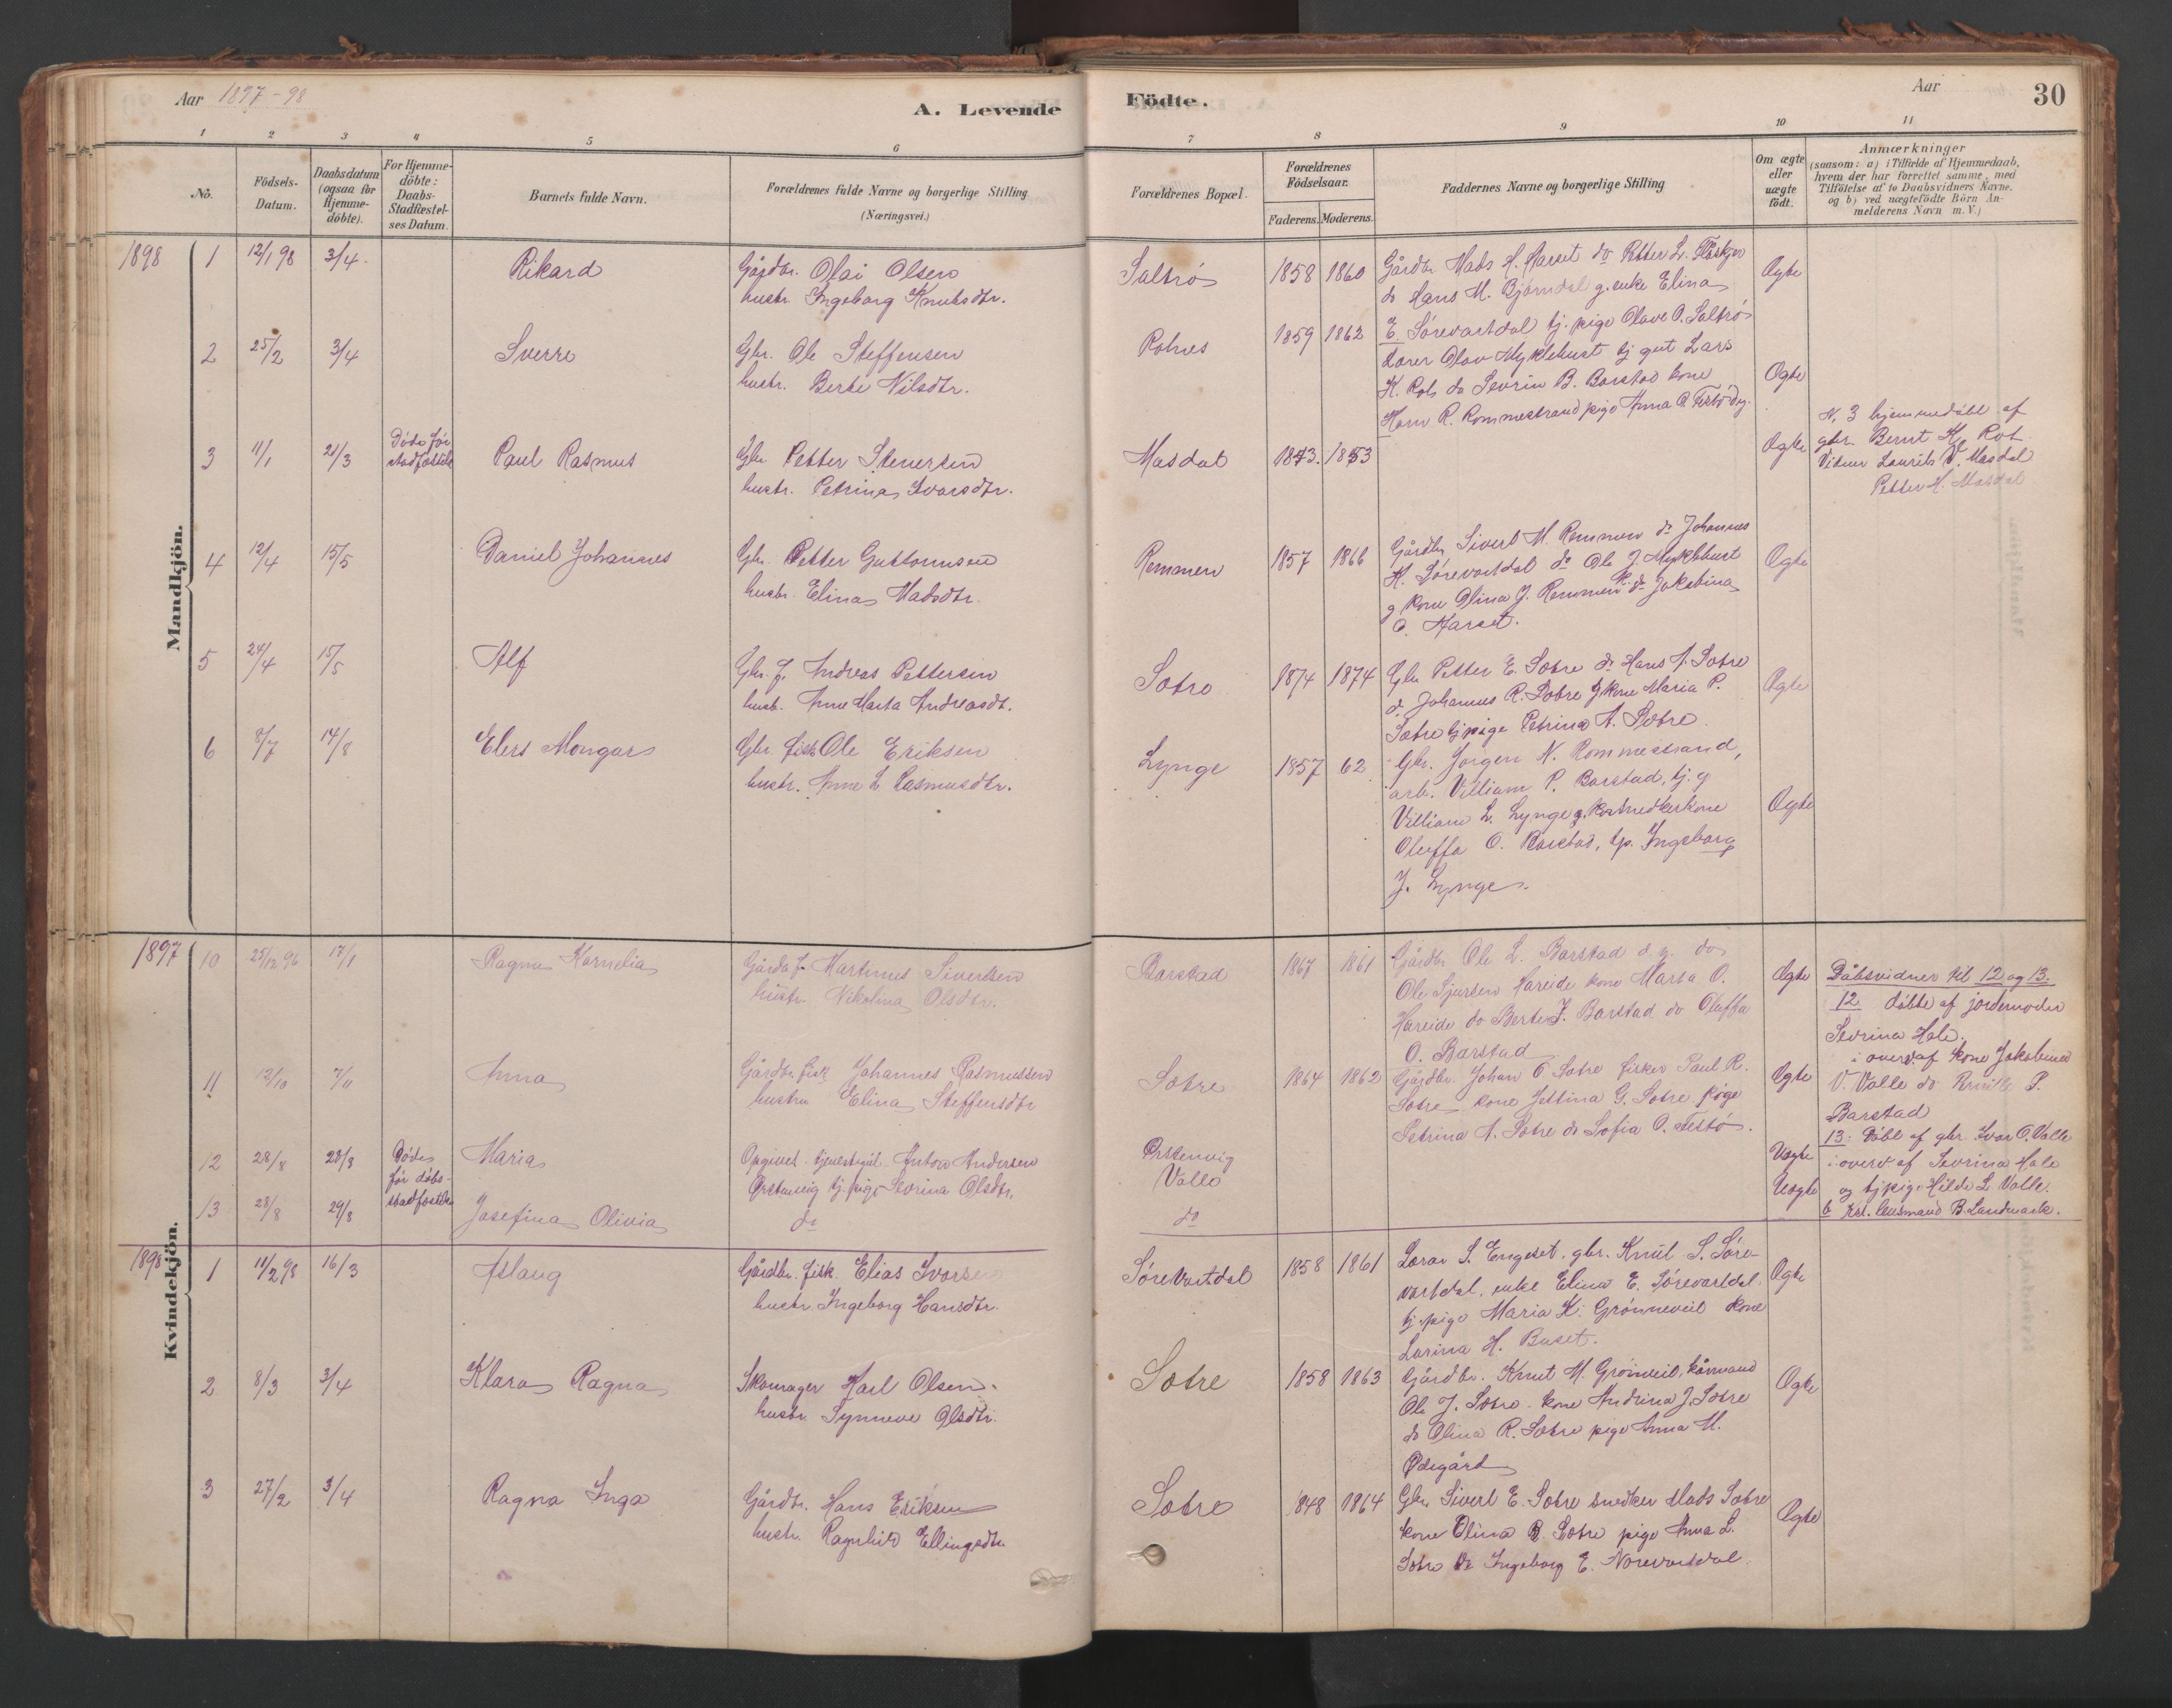 Aar 1897-98
A. Levende
Födte.
Aar
30
1 2 3 4 5 6 7 8 9 10 11
No.
Födsels-Datum.
Daabsdatum (ogsaa for Hjemme-döbte).
For Hjemme-döbte: Daabs-Stadfæstel-ses Datum.
Barnets fulde Navn.
Forældrenes fulde Navne og borgerlige Stilling (Næringsvei.)
Forældrenes Bopæl.
Forældrenes Födselsaar.
Faderens. Moderens.
Faddernes Navne og borgerlige Stilling
Om ægte eller uægte födt.
Anmærkninger
(saasom: a) i Tilfælde af Hjemmedaab,
hvem der har forrettet samme, med
Tilföielse af to Daabsvidners Navne.
og b) ved uægtefödte Börn An-
melderens Navn m. V.)
Mandkjön.
1898 1 12/1 98 3/4 Rikard
Gårdbr. Olai Olsen
hustr. Ingeborg Knutsdtr.
Saltrø 1858 1860
Gårdbr. Mads H. Marset do Petter L.
do Hans M. Bjørndal g. enke Elina
E. Sørevartdal tj. pige Olave O. Saltrø
Ægte
2 25/2 3/4 Sverre
Gbr. Ole Steffensen
hustr. Berte Nilsdtr.
1859 1862
Lærer Olav Myklebust tj gut Lars
K. Rots do Sevrin B. Barstad kone
R. Rommestrand pige Anna O.
Ægte
3 11/1 21/3 Døde før stadfæstelse Paul Rasmus
Gbr. Petter Stenersen
hustr. Petrina Ivarsdtr.
Masdal 1843. 1853 Ægte
N. 3 hjemmedøbt af
gbr. Bernt K. Rot
Vidner Laurits V. Masdal
Petter H. Masdal
4 12/4 15/5 Daniel Johannes
Gbr. Petter Guttormsen
hustr. Elina Madsdtr.
Remmen 1857 1866
Gårdbr. Sivert M. Remmen do Johannes
K. Sørevartdal do Ole J. Myklebust
g. kone Olina J. Remmen k. do Jakobina
O. Marset.
Ægte
5 24/4 15/5 Alf
Gbr. f. Andreas Pettersen
hustr. Anne Marta Andreasdt.
Sætre 1874 1874
Gbr Petter E. Sætre do Hans A. Sætre
do Johannes R. Sætre g kone Maria P.
Sætre tj pige Petrina A. Sætre.
Ægte
6 8/7 14/8 Elers Mongar
Gbr. fisk Ole Eriksen
hustr. Anne L Rasmusdtr.
Lynge 1857 62
Gbr. Jørgen N. Rommestrand,
arb. Villiam P. Barstad, tj. g
Villiam L. Lynge g.
Oluffa O. Barstad, tp. Ingeborg
J. Lynge.
Ægte
Kvindekjön.
1897 10 25/12 96 17/1 Ragna Kornelia
Gårdbr f. Martinus Sivertsen
hustr. Nikolina Olsdtr.
Barstad 1867 1861
Gårdbr Ole L. Barstad d. y. do
Ole Sjursen Hareide kone Marta O.
Hareide do Berte J. Barstad do Oluffa
O. Barstad
Ægte
Dåbsvidner til 12 og 13.
12 døbte af jordemoder
Sevrina Hole.
i overv. af kone Jakobine
V. Valle do P.
Barstad
13: Døbt af gbr. Ivar O. Valle
i overv af Sevrina Hole
og tj pige Hilda L. Valle.
b Kst. lensmand B. Landmark.
11 12/10 7/11 Anna
Gårdbr. fisk Johannes Rasmussen
hustru Elina Steffensdtr
Sætre 1864 1862
Gårdbr. Johan O Sætre fisker Paul R.
Sætre kone Jettina G. Sætre pige
Petrina A. Sætre do Sofia O. Festø.
Ægte
12 28/8 28/8 Døde før dåbs-stadfæstelse Maria
Opgivet tjenestegut Anton Andersen
Ørstenvig tj. pige Sevrina Olsdtr.
Ørstenvig
Valle
Uægte
13 28/8 29/8 Josefina Olivia
do
do
Uægte
1898 1 11/2 98 16/3 Aslaug
Gårdbr. fisk. Elias Ivarsen
hustr. Ingeborg Hansdtr.
Sørevartdal 1858 1861
Lærer S. Engeset. gbr. Knut S. Søre-
vartdal, enke Elina E. Sørevartdal.
tj. pige Maria K. Grönneveit kone
Larina H. Buset.
Ægte
2 8/3 3/4 Klara Ragna
Skomager Karl Olsen.
hustr. Synneve Olsdtr.
Sætre 1858 1863
Gårdbr. Knut M. Grönneveit, kårmand
Ole J. Sætre. kone Andrina J. Sætre
do Olina R. Sætre pige Anna M.
Ødegård
Ægte
3 27/2 3/4 Ragna Inga
Gårdbr. Hans Eriksen
hustr. Ragnhild Ellingsdtr.
Sætre 1848 1864
Gbr. Sivert E. Sætre snedker Mads Sætre
kone Olina R. Sætre pige Anna L.
Sætre do Ingeborg E. Norevartdal.
Ægte